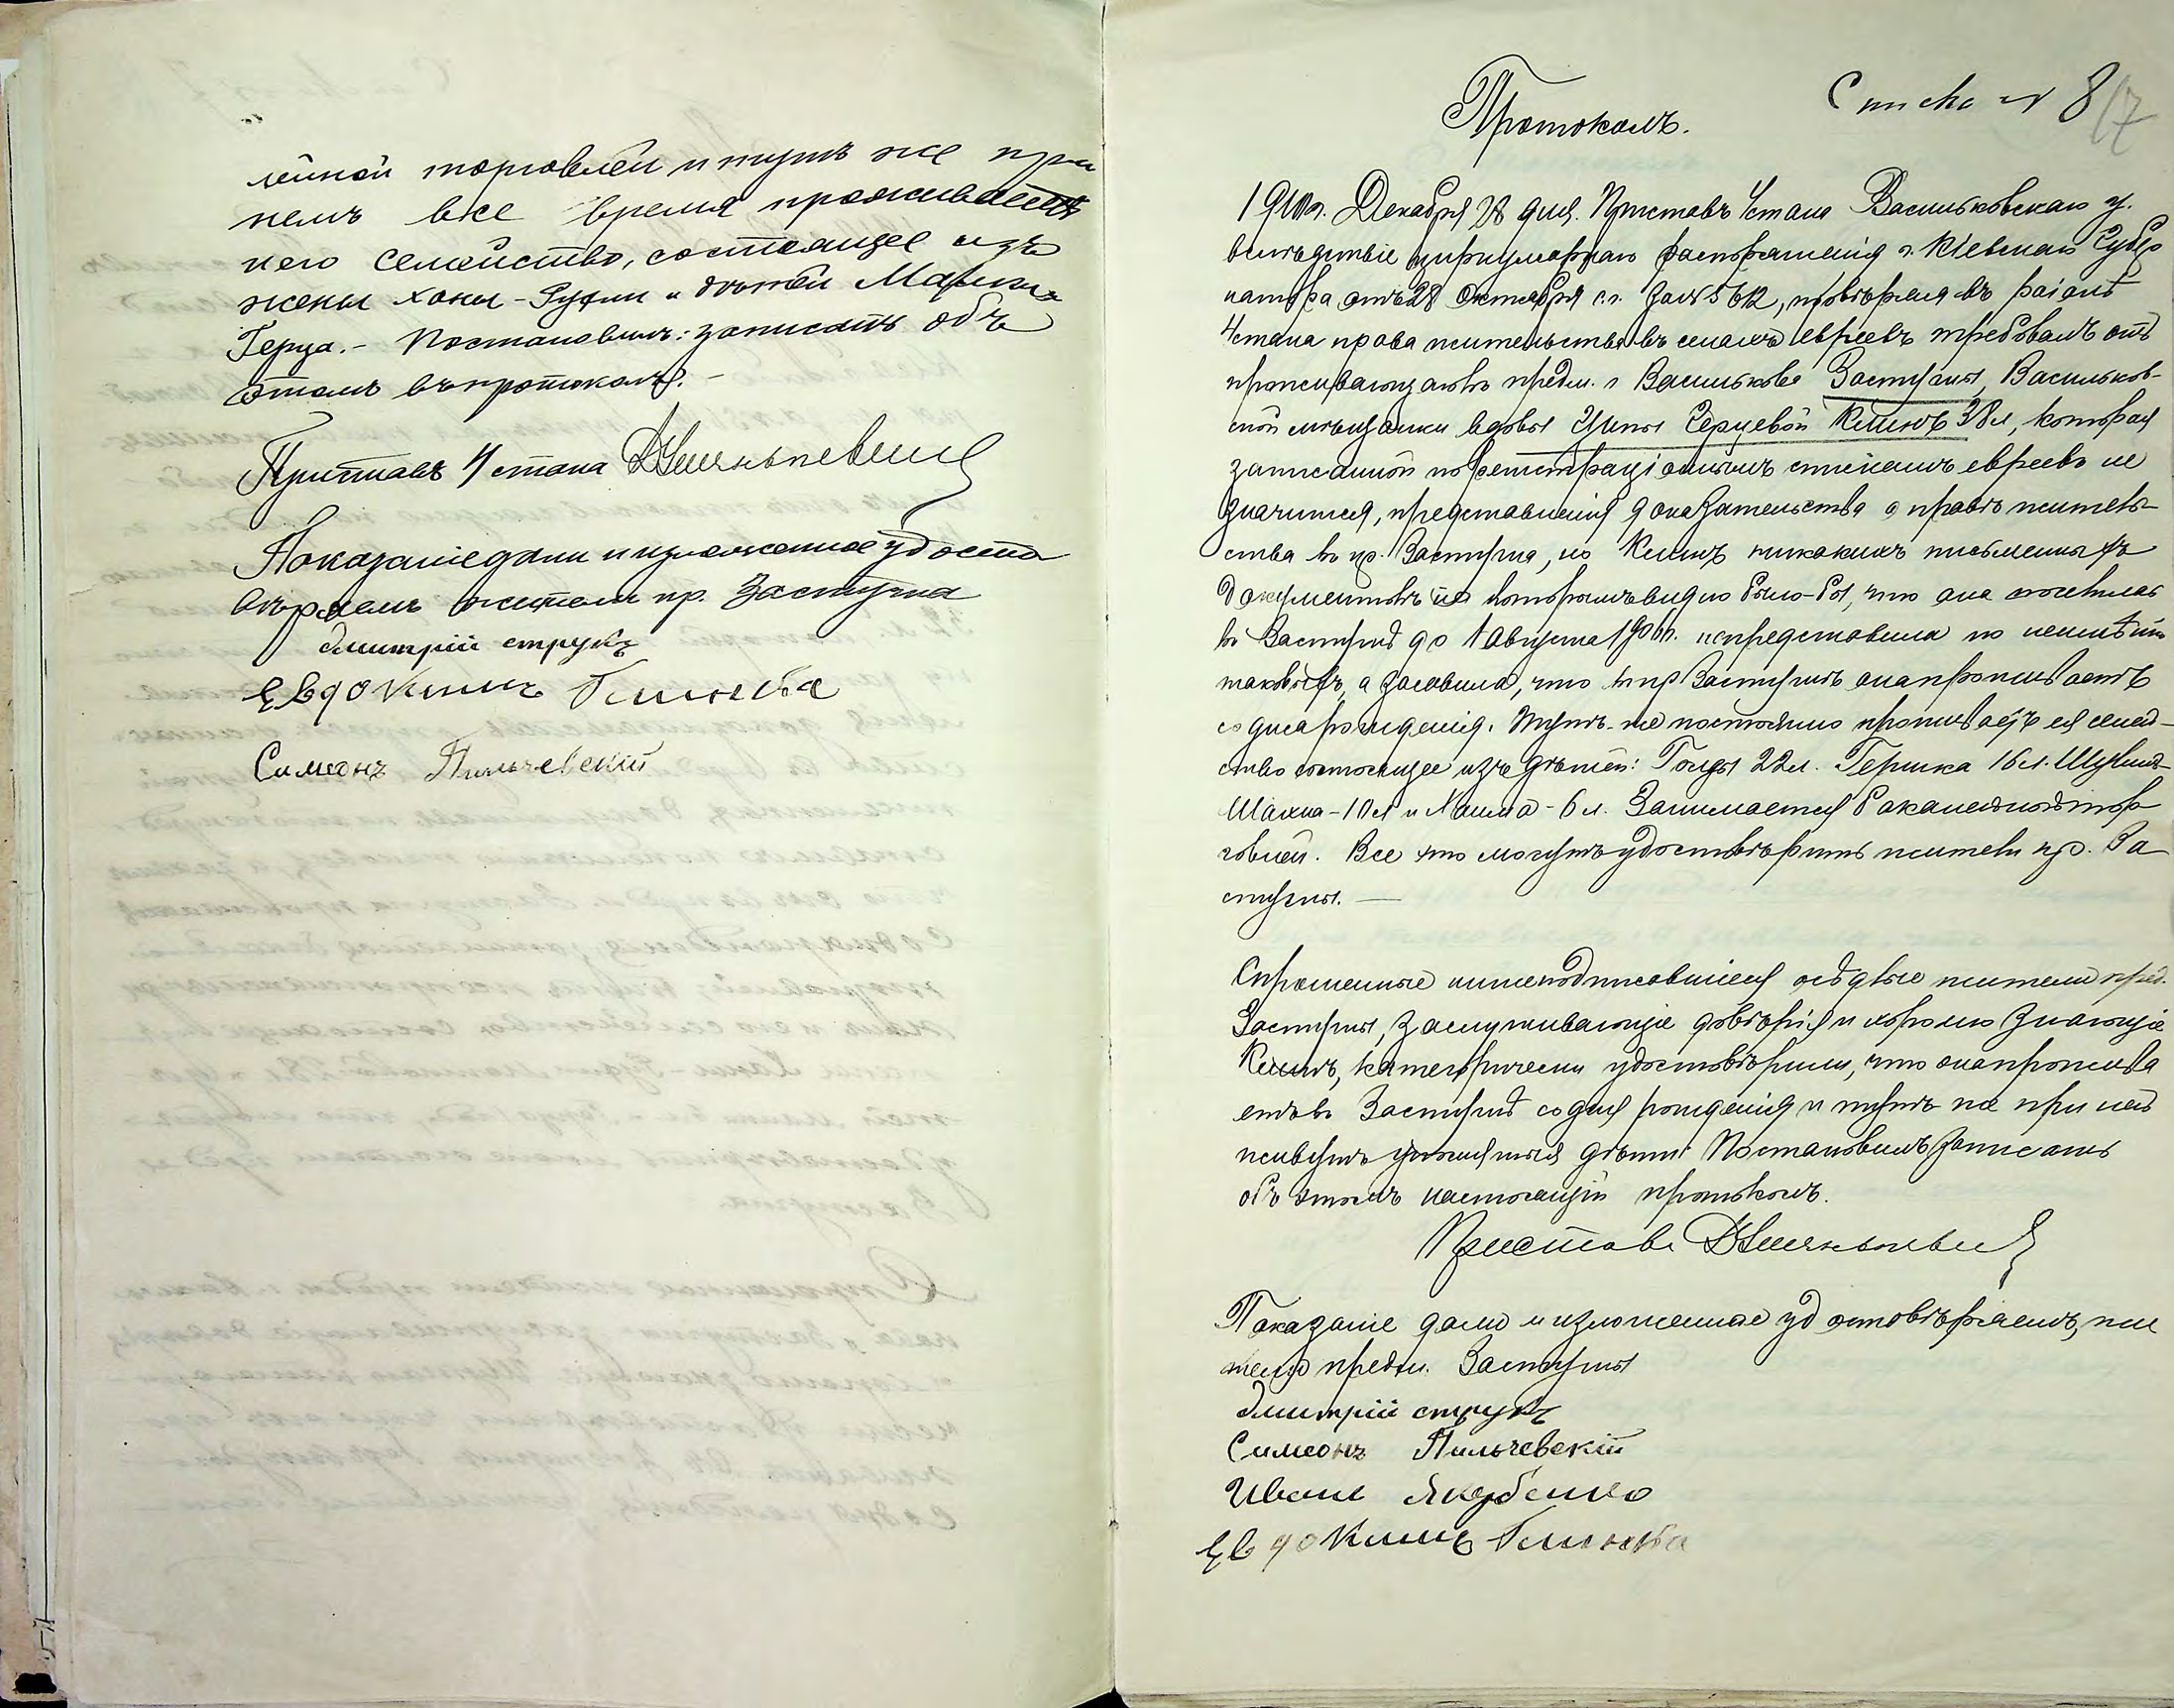 лейной торговлей и тутъ же при
немъ все время проживаетъ
него семейство, состоящее изъ
жены Ханы-Руфли и дѣтей Малки и
Герца.- Постановилъ: записать объ
этомъ въ протоколъ.-
Приставъ 4 стана
Показаніе дали и изложенное удосто
вѣряемъ жители пр. Заступна
Дмитрій Струкъ
Евдокимъ Глинка
Симеонъ Пильчевскій
Списка № 8
17
Протоколъ.
1910 г. Декабря 28 дня. Приставъ 4 стана Васильковскаго у.
вслѣдствіе циркулярнаго распоряженія г. Кіевскаго Губер
натора отъ 28 Октября с.г. за № 5612, провѣряя въ раіонѣ
4 стана права жительства въ селахъ евреевъ требовалъ отъ
проживающаго въ предм. г. Василькова Заступны, Васильков-
ской мѣщанки вдовы Ципы Герцевой 38 л, которая
записанной по регистраціоннымъ спискамъ евреевъ не
значится, представленія доказательства о правѣ житель-
ства въ пр. Заступна, но никакихъ письменныхъ
документовъ изъ которыхъ видно было-бы, что она поселилась
въ Заступнѣ до 1 Августа 1906 г. не представила по неимѣнію
таковыхъ, а заявила, что въ пр Заступнѣ она проживаетъ
со дня рожденія. Тутъ-же постоянно проживаетъ ея семей-
ство состоящее изъ дѣтей: Голды 22 л. Гершка 16 л.
10 л и Хаима - 6 л. Занимается бакалейной тор
говлей. Все это могутъ удостовѣрить жители пр. За
ступны. —
Спрошенные нижеподписавшіеся осѣдлые жители пред.
Заступны, заслуживающіе довѣрія и хорошо знающіе
категорически удостовѣрили, что она прожива
етъ въ Заступнѣ со дня рожденія и тутъ же при ней
живутъ дѣти Постановилъ записать
объ этомъ настоящій протоколъ.
Приставъ
Показаніе дали и изложенное удостовѣряемъ, жи
тели предм. Заступны
Дмитрій Струкъ
Симеонъ Пильчевскій
Иванъ Якубенко
Евдокимъ Глинка